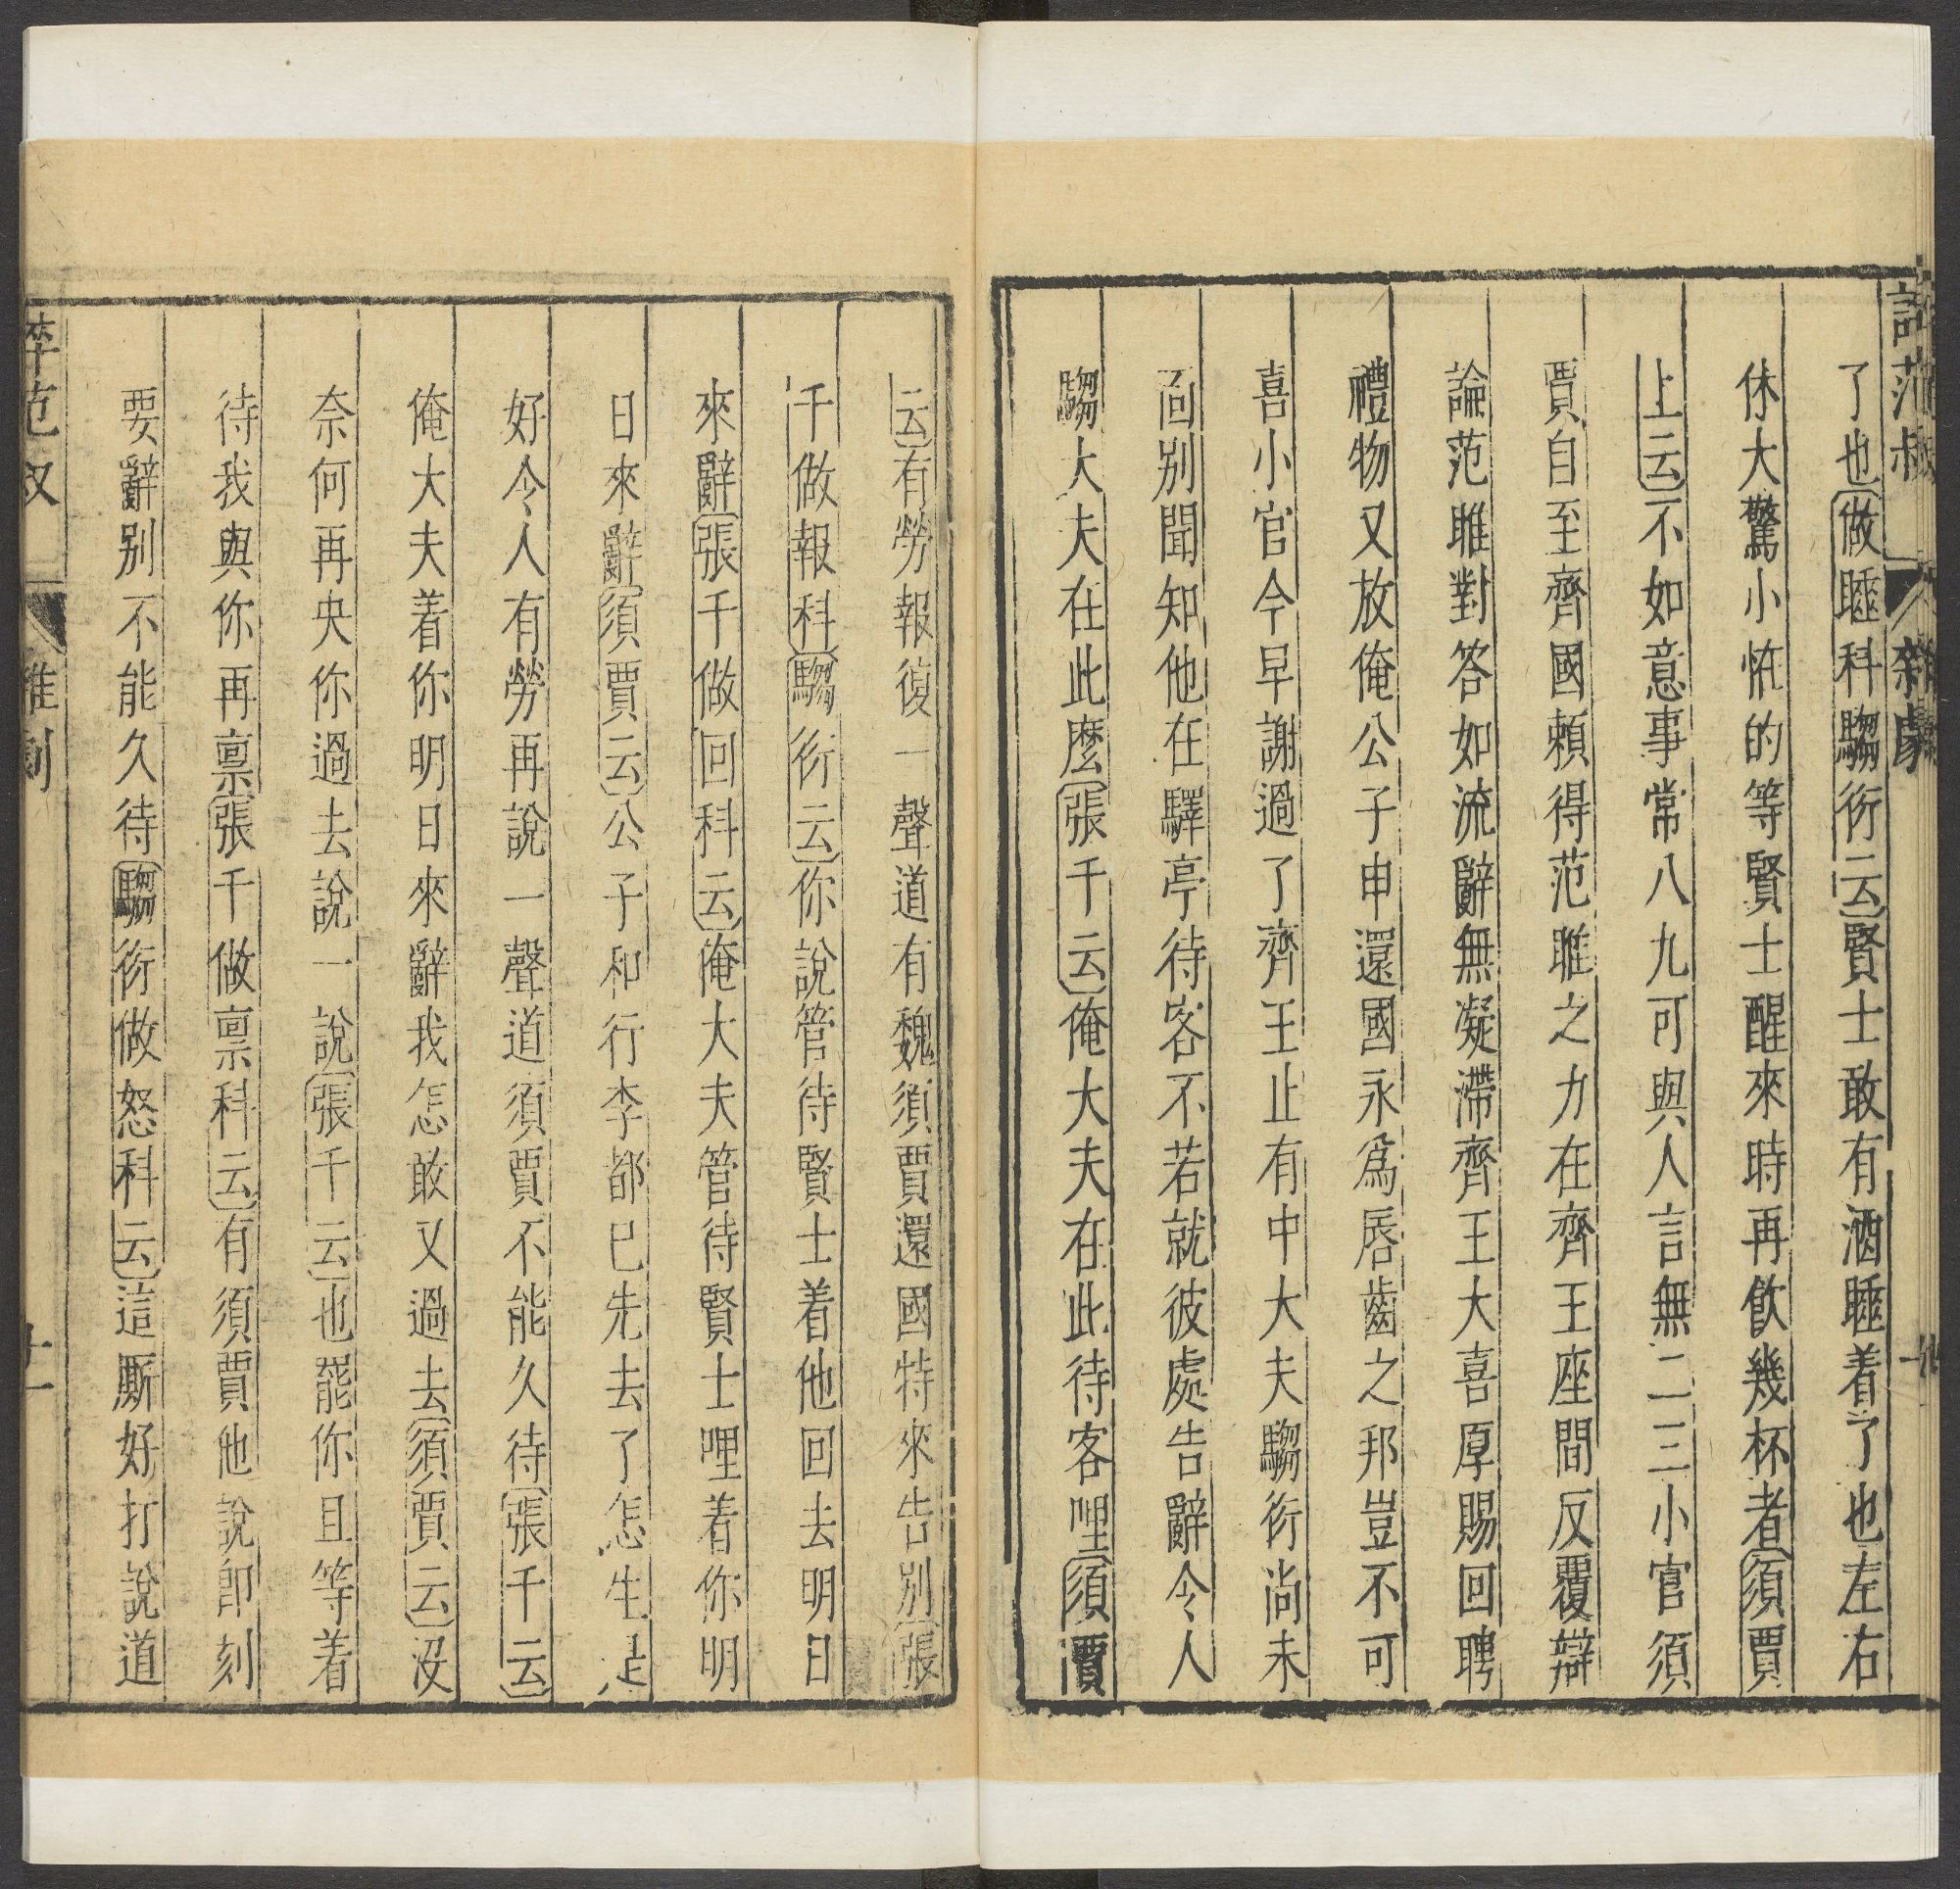 誶范叔 雜劇
了也做睡科騶衍云賢士敢有酒睡着了也左右
休大驚小怪的等賢士醒來時再飲幾杯者須賈
上云不如意事常八九可與人言無二三小官須
賈自至齊國賴得范雎之力在齊王座間反覆辯
論范雎對答如流辭無凝滯齊王大喜厚賜回聘
禮物又放俺公子申還國永爲唇齒之邦豈不可
喜小官今早謝過了齊王止有中大夫騶衍尚未
囘別聞知他在驛亭待客不若就彼處告辭令人
騶大夫在此麽張千云俺大夫在此待客哩須賈
云有勞報復一聲道有魏須賈還國特來告別張
千做報科騶衍云你說管待賢士着他回去明日
來辭張千做回科云俺大夫管待賢士哩着你明
日來辭須賈云公子和行李都已先去了怎生是
好令人有勞再說一聲道須賈不能久待張千云
俺大夫着你明日來辭我怎敢又過去須賈云沒
奈何再央你過去說一說張千云也罷你且等着
待我與你再稟張千做稟科云有須賈他說即刻
要辭別不能久待騶衍做怒科云這厮好打說道
誶范叔 雜劇 十一